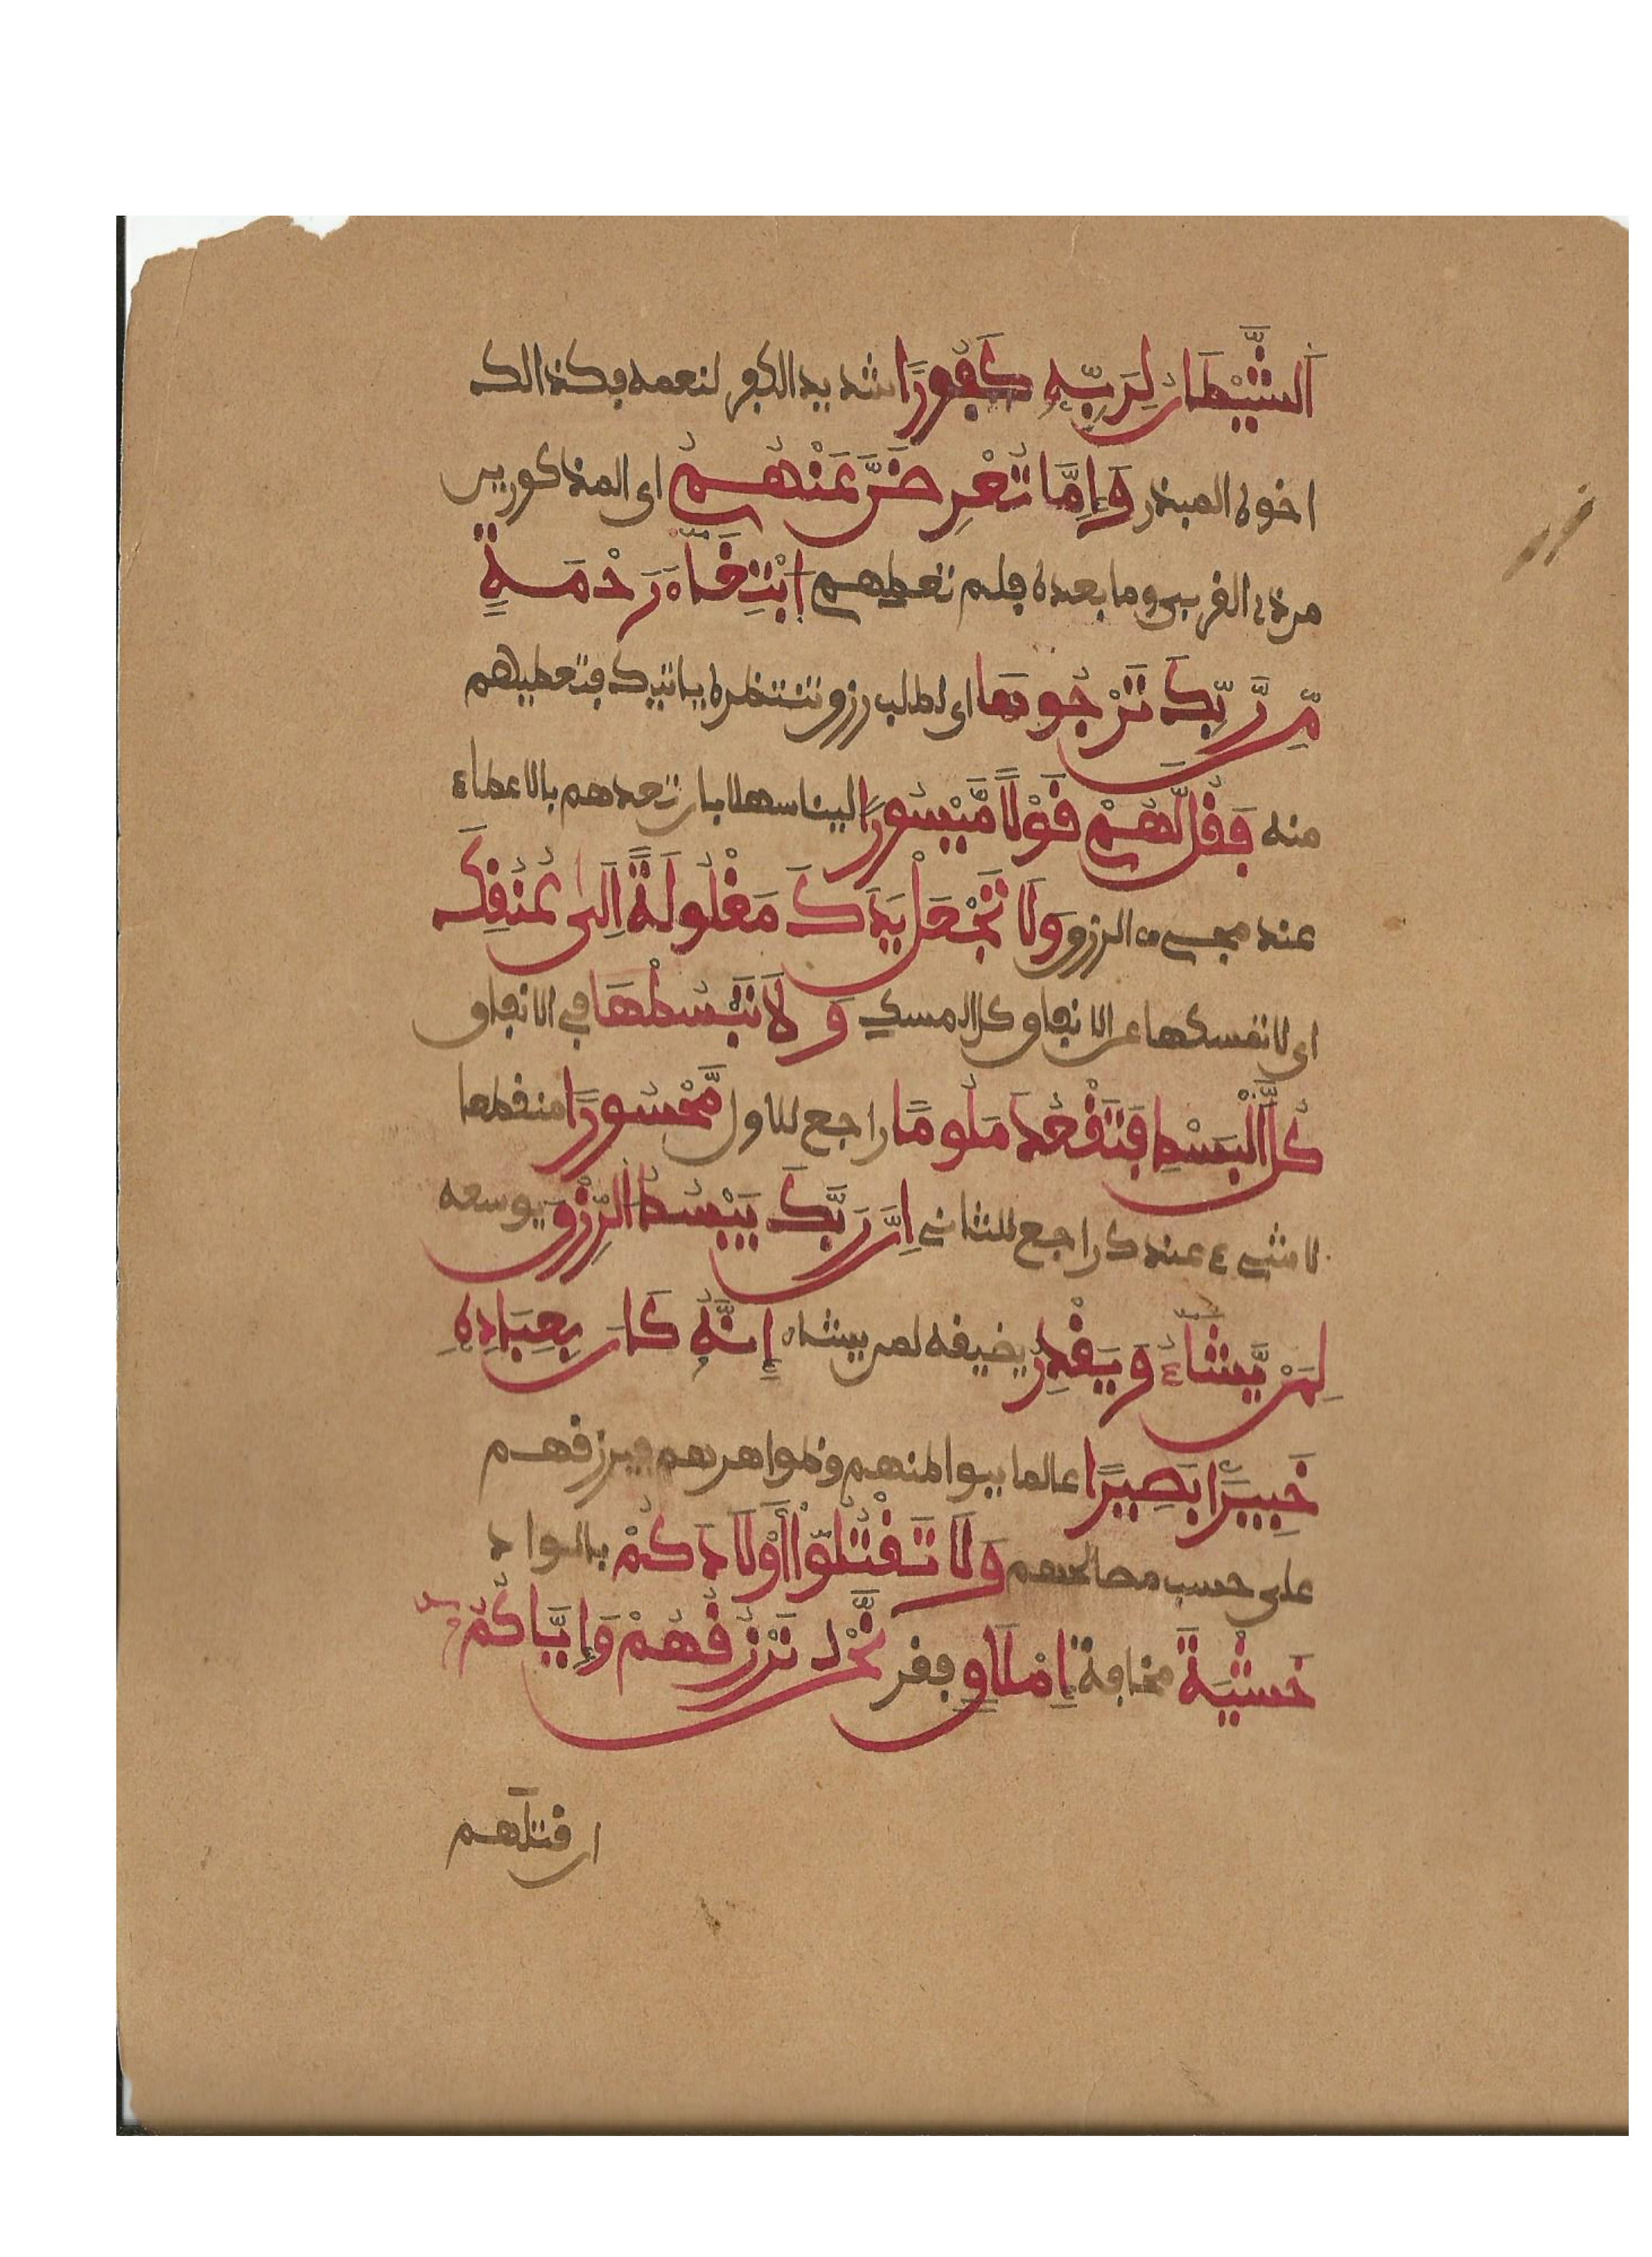 اَلشَّيْطَانُ لِرَبِّهِ كَفُورًا شديد الكفر لنعمه فكذالك
اخوه المبذر وَإِمَّا تُعْرِضَنَّ عَنْهُمُ اى المذكورين
من ذى القربى وما بعده فلم تعطيهم اِبْتِغَآءَ رَحْمَةٍ
مِّن رَّبِّكَ تَرْجُوهَا اى لطلب رزق تنتظره ياتيك فتعطيهم
منه فَقُل لَّهُمْ قَوْلًا مَّيْسُورًا لينا سهلا بان تعدهم بالاعطاء
عند مجىء الرزق وَلَا تَجْعَلْ يَدَكَ مَغْلُولَةً اِلَىٰ عُنُقِكَ
اى لا تمسكها عن الانفاق كل المسك وَلَا تَبْسُطْهَا في الانفاق
كُلَّ اَلْبَسْطِ فَتَقْعُدَ مَلُومًا راجع للاول مَّحْسُورًا منقطعا
لا شىء عندك راجع للثانى اِنَّ رَبَّكَ يَبْسُطُ الرِّزْقَ يوسعه
لِمَنْ يَّشَآءُ وَيَقْدِرُ يضيقه لمن يشاء إِنَّهُ كَانَ بِعِبَادِهِ
خَبِيرًا بَصِيرًا عالما ببواطنهم وظواهرهم فيرزقهم
على حسب مصالحهم وَلَا تَقْتُلُوٓاْ أَوْلَادَكُمْ بالواد
خَشْيَةَ مخافة إِمْلَاقٍ فقر نَّحْنُ نَرْزُقُهُمْ وَإِيَّاكُمُ
ان قتلهم